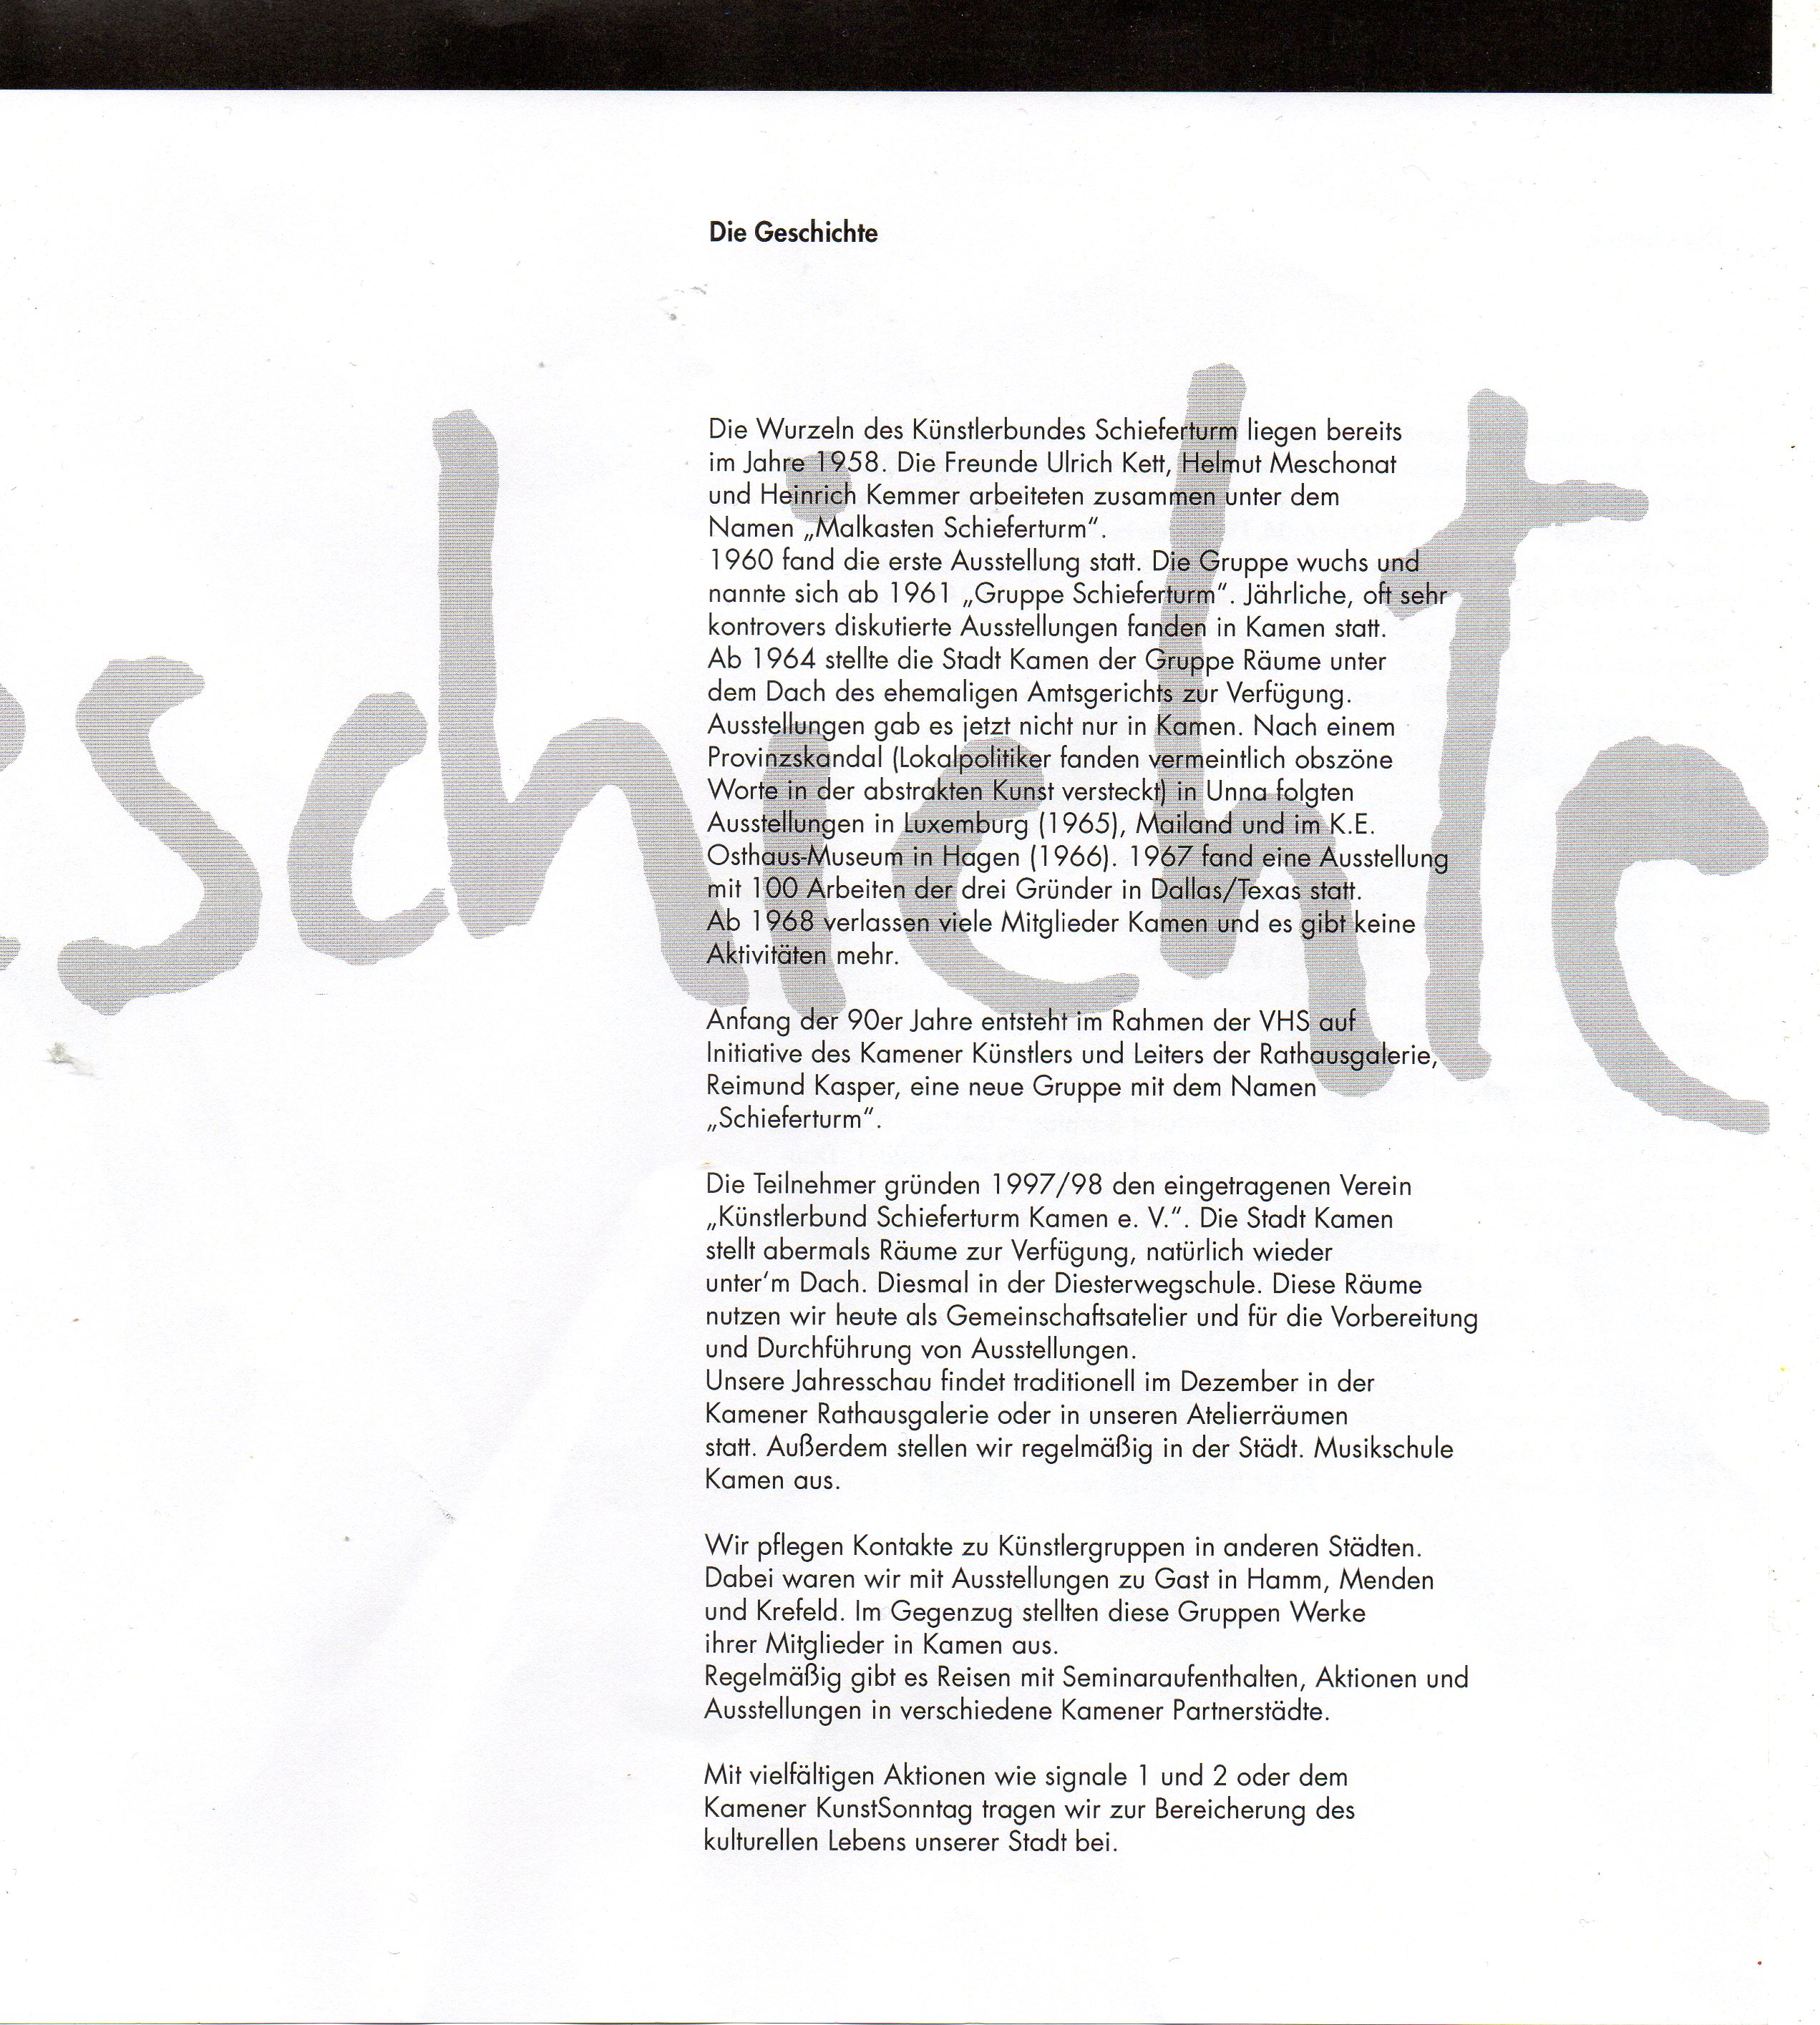 Die Geschichte
eschichte
Die Wurzeln des Künstlerbundes Schieferturm liegen bereits
im Jahre 1958. Die Freunde Ulrich Kett, Helmut Meschonat
und Heinrich Kemmer arbeiteten zusammen unter dem
Namen „Malkasten Schieferturm“.
1960 fand die erste Ausstellung statt. Die Gruppe wuchs und
nannte sich ab 1961 „Gruppe Schieferturm“. Jährliche, oft sehr
kontrovers diskutierte Ausstellungen fanden in Kamen statt.
Ab 1964 stellte die Stadt Kamen der Gruppe Räume unter
dem Dach des ehemaligen Amtsgerichts zur Verfügung.
Ausstellungen gab es jetzt nicht nur in Kamen. Nach einem
Provinzskandal (Lokalpolitiker fanden vermeintlich obszöne
Worte in der abstrakten Kunst versteckt) in Unna folgten
Ausstellungen in Luxemburg (1965), Mailand und im K.E.
Osthaus-Museum in Hagen (1966). 1967 fand eine Ausstellung
mit 100 Arbeiten der drei Gründer in Dallas/Texas statt.
Ab 1968 verlassen viele Mitglieder Kamen und es gibt keine
Aktivitäten mehr.
Anfang der 90er Jahre entsteht im Rahmen der VHS auf
Initiative des Kamener Künstlers und Leiters der Rathausgalerie,
Reimund Kasper, eine neue Gruppe mit dem Namen
„Schieferturm“.
Die Teilnehmer gründen 1997/98 den eingetragenen Verein
„Künstlerbund Schieferturm Kamen e. V.“. Die Stadt Kamen
stellt abermals Räume zur Verfügung, natürlich wieder
unter’m Dach. Diesmal in der Diesterwegschule. Diese Räume
nutzen wir heute als Gemeinschaftsatelier und für die Vorbereitung
und Durchführung von Ausstellungen.
Unsere Jahresschau findet traditionell im Dezember in der
Kamener Rathausgalerie oder in unseren Atelierräumen
statt. Außerdem stellen wir regelmäßig in der Städt. Musikschule
Kamen aus.
Wir pflegen Kontakte zu Künstlergruppen in anderen Städten.
Dabei waren wir mit Ausstellungen zu Gast in Hamm, Menden
und Krefeld. Im Gegenzug stellten diese Gruppen Werke
ihrer Mitglieder in Kamen aus.
Regelmäßig gibt es Reisen mit Seminaraufenthalten, Aktionen und
Ausstellungen in verschiedene Kamener Partnerstädte.
Mit vielfältigen Aktionen wie signale 1 und 2 oder dem
Kamener KunstSonntag tragen wir zur Bereicherung des
kulturellen Lebens unserer Stadt bei.